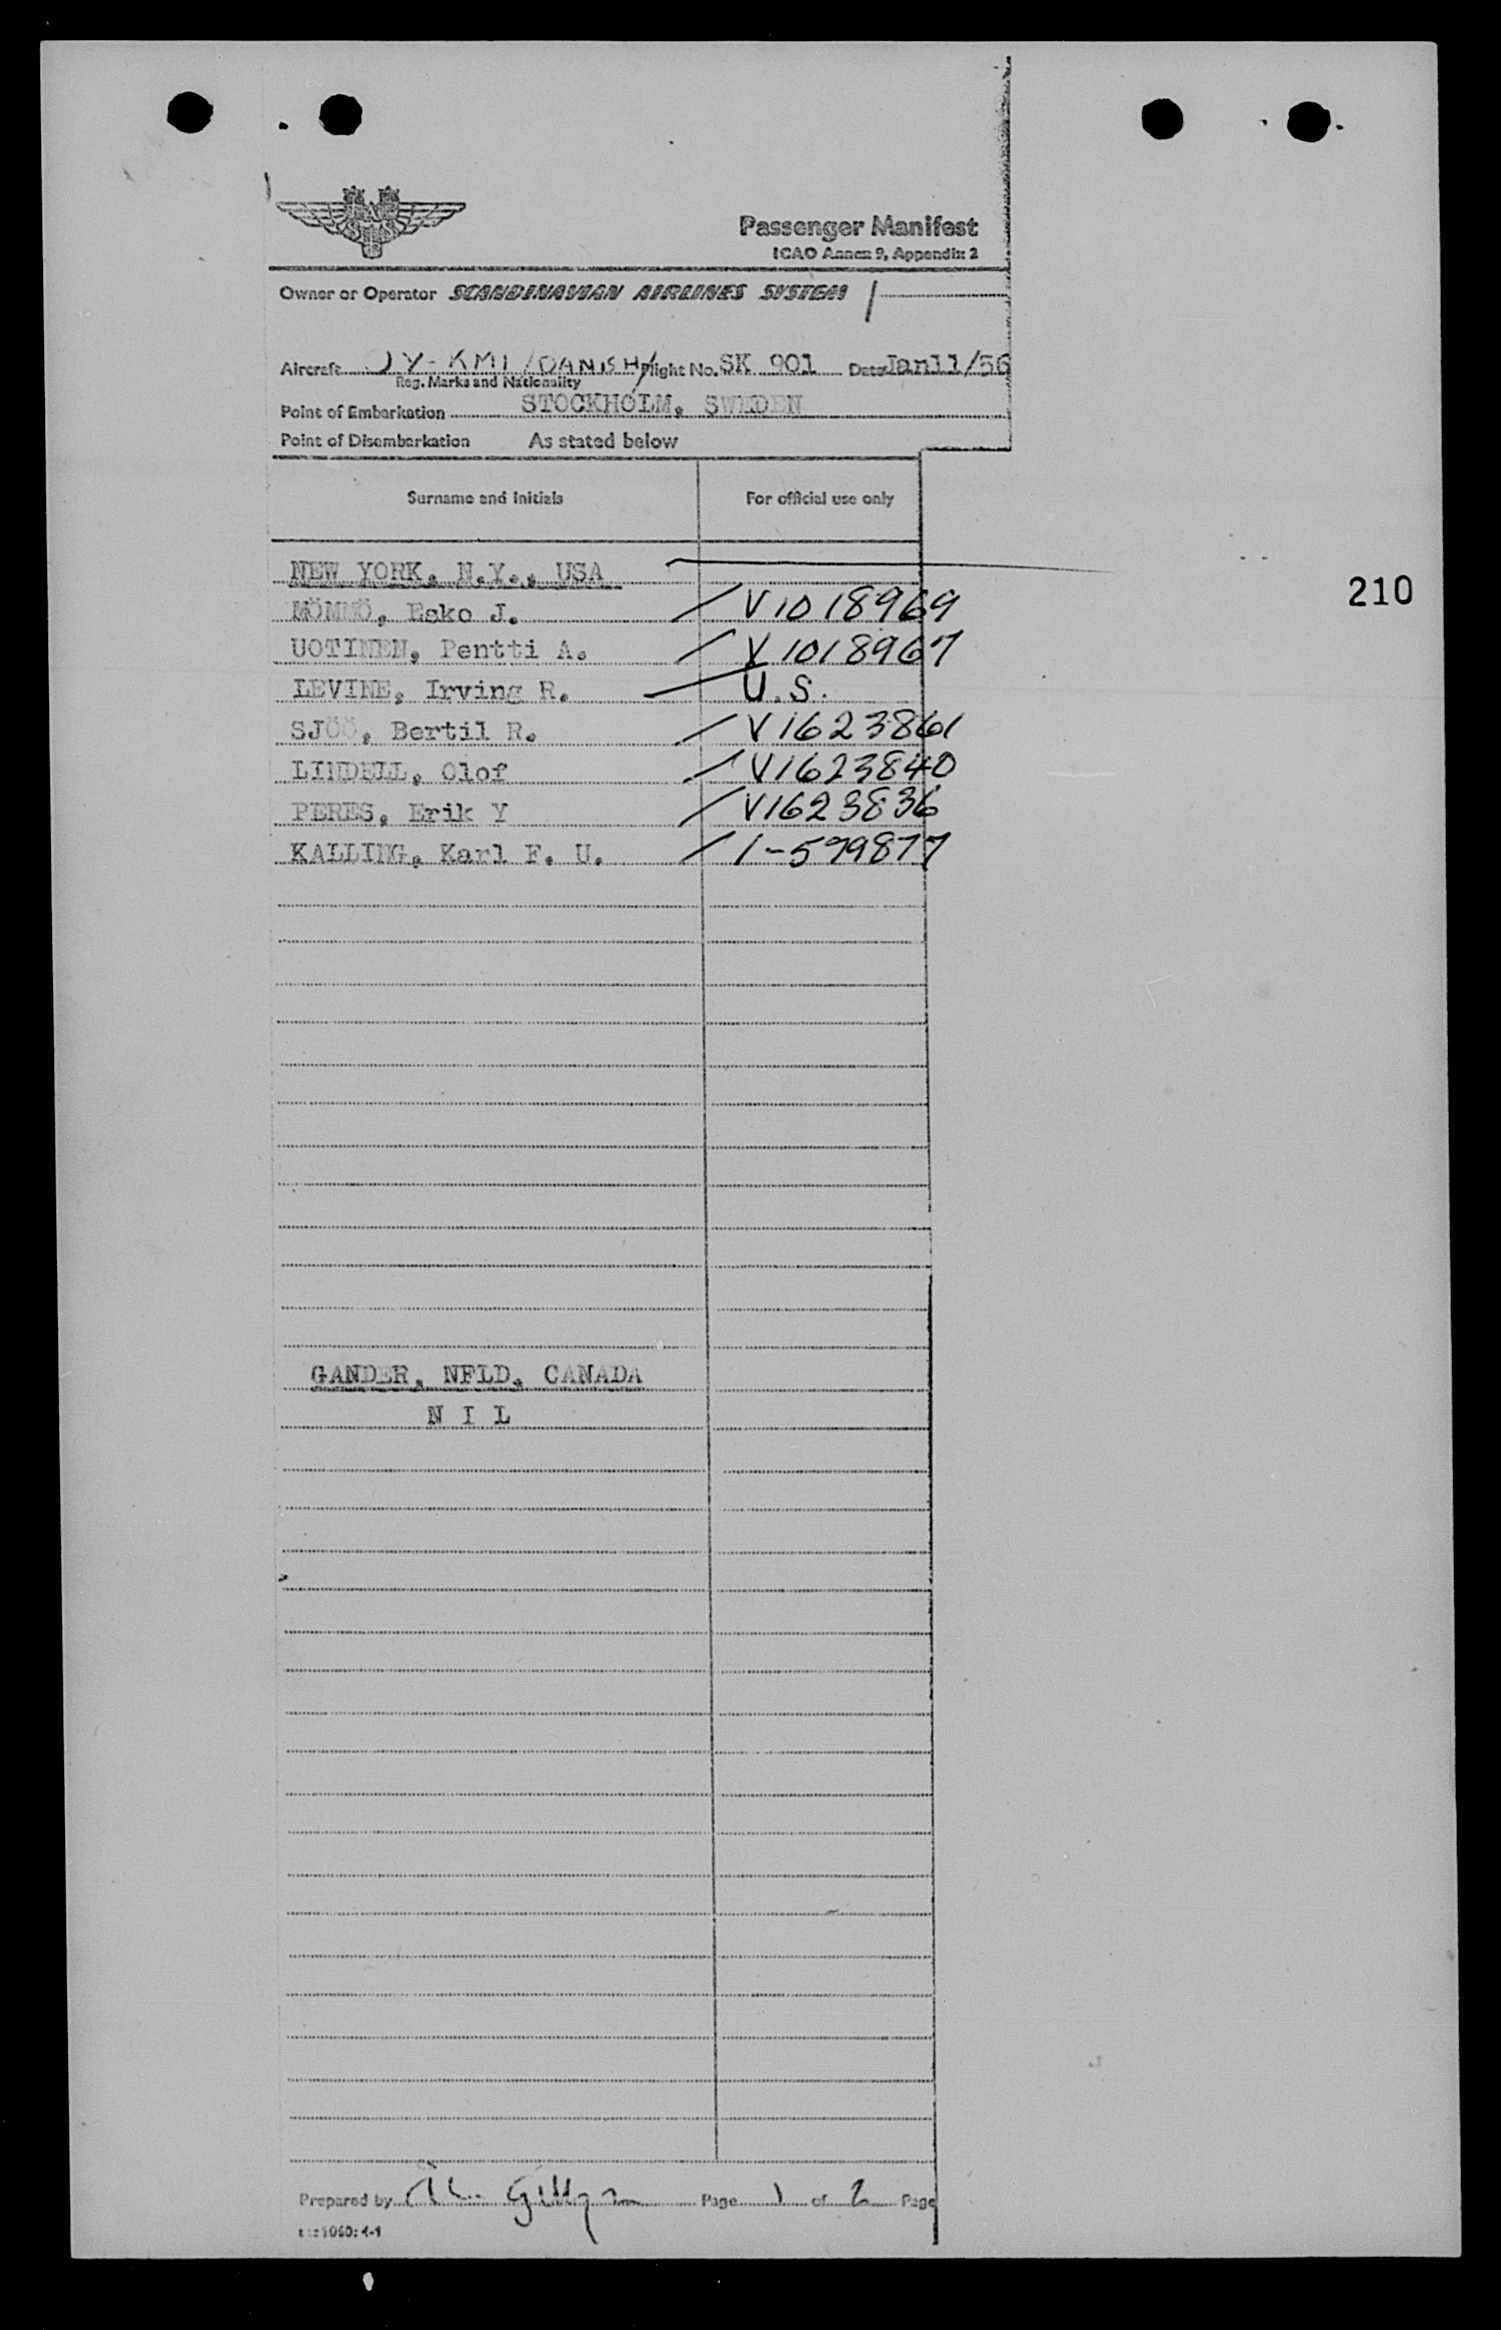 SAS
Passenger Manifest
ICAO Annex 9, Appendix 2
Owner or Operator SCANDINAVIAN AIRLINES SYSTEM
Aircraft OY-KMI /DANISH/ Flight No. SK 901 Date Jan11/56
Reg. Marks and Nationality
Point of Embarkation STOCKHOLM, SWEDEN
Point of Disembarkation As stated below
Surname and Initials For official use only
NEW YORK, N.Y., USA
210
MÖMMÖ, Esko J. V1018969
UOTINEN, Pentti A. V1018967
LEVINE, Irving R. U.S.
SJÖÖ, Bertil R. V1623861
LINDELL, Olof V1623840
PERES, Erik Y V1623836
KALLING, Karl F. U. 1-599877
GANDER, NFLD, CANADA
N I L
Prepared by Page 1 of 2 Page